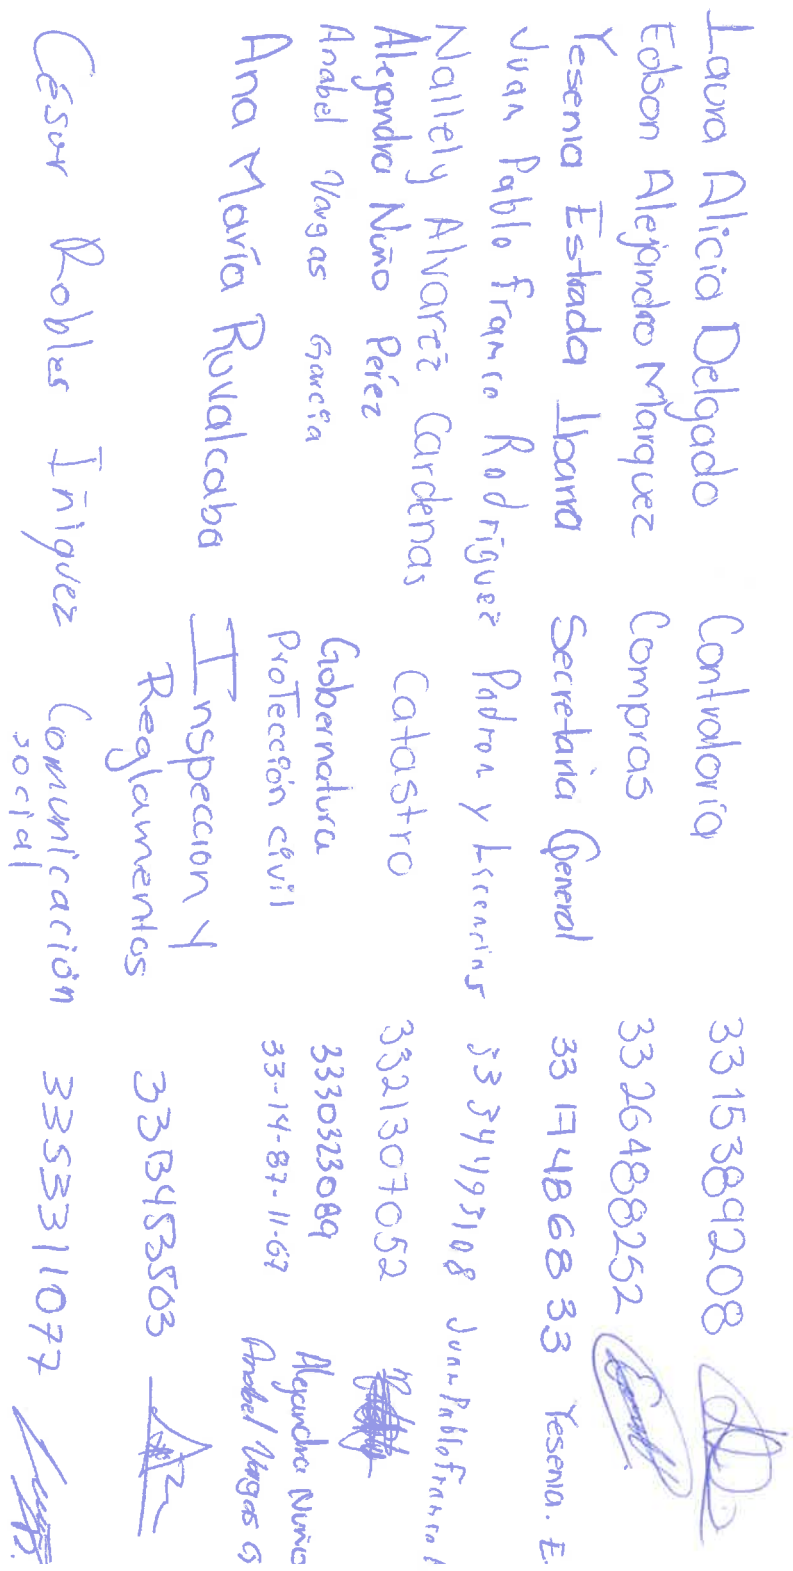 Laura Alicia Delgado Contraloría 33 15389208
Edson Alejandro Marquez Compras 33 26488252
Yesenia Estrada Ibarra Secretaria General 33 17486833 Yesenia. E.
Juan Pablo Franco Rodriguez Padron y Licencias 33 34495108 Juan Pablo Franco
Nallely Alvarez Cardenas Catastro 3321307052
Alejandra Nuño Perez Gobernatura 3330323089 Alejandra Nuño
Anabel Vargas García Protección civil 33-14-87-11-67 Anabel Vargas G
Ana María Ruvalcaba Inspeccion y
Reglamentos
César Robles Iñiguez Comunicación 3353311077
social